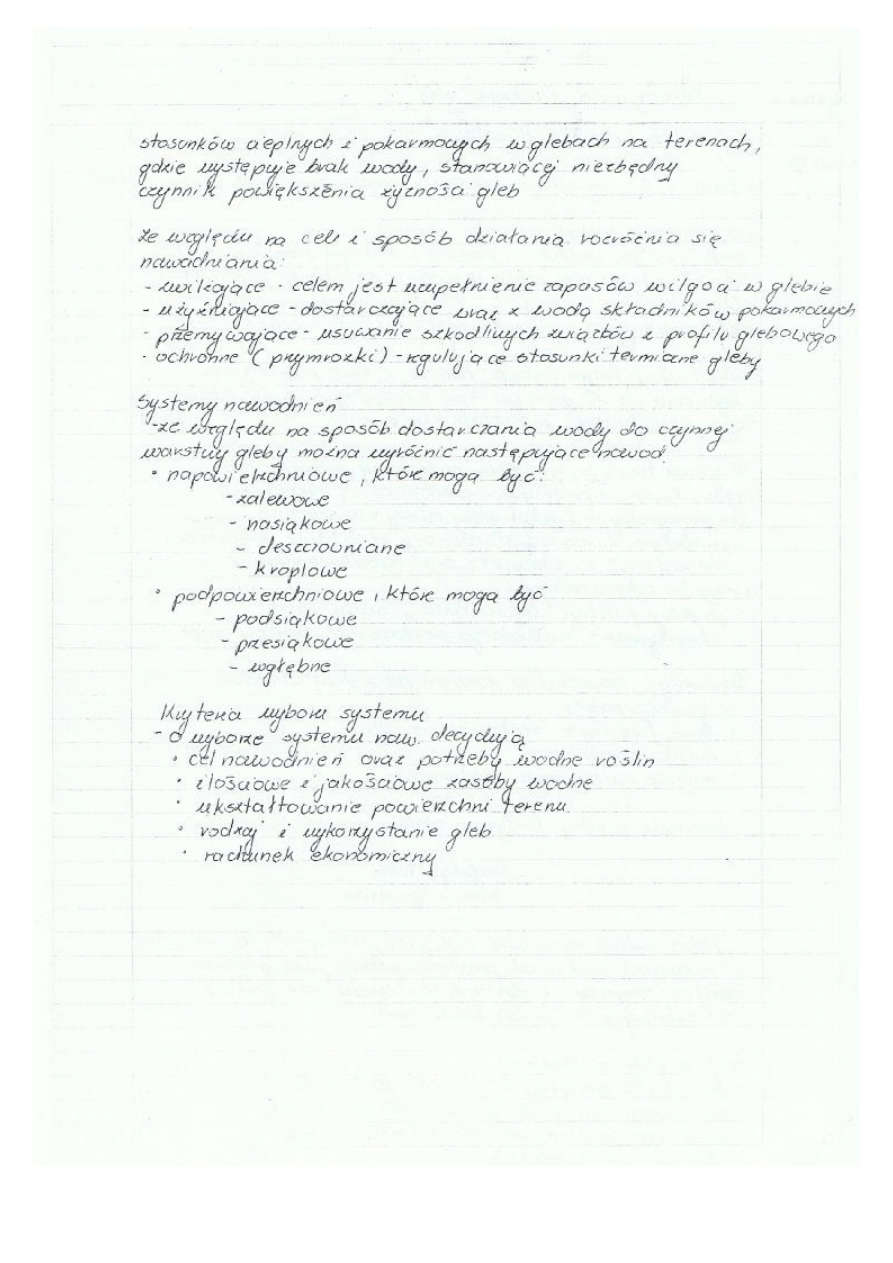 stosunków cieplnych i pokarmowych w glebach na terenach,
gdzie występuje brak wody, stanowiącej niezbędny
czynnik powiększenia żyzności gleb
Ze względu na cel i sposób działania rozróżnia się
nawadniania:
- zwilżające - celem jest uzupełnienie zapasów wilgoci w glebie
- użyźniające - dostarczające wraz z wodą składników pokarmowych
- przemywające - usuwanie szkodliwych związków z profilu glebowego
- ochronne (przymrozki) - regulujące stosunki termiczne gleby
Systemy nawodnień
- ze względu na sposób dostarczania wody do czynnej
warstwy gleby można wyróżnić następujące nawod.
• napowierzchniowe, które mogą być:
- zalewowe
- nasiąkowe
- deszczowniane
- kroplowe
• podpowierzchniowe, które mogą być
- podsiąkowe
- przesiąkowe
- wgłębne
Kryteria wyboru systemu
- O wyborze systemu naw. decydują
• cel nawodnień oraz potrzeby wodne roślin
• ilościowe i jakościowe zasoby wodne
• ukształtowanie powierzchni terenu.
• rodzaj i wykorzystanie gleb
• rachunek ekonomiczny